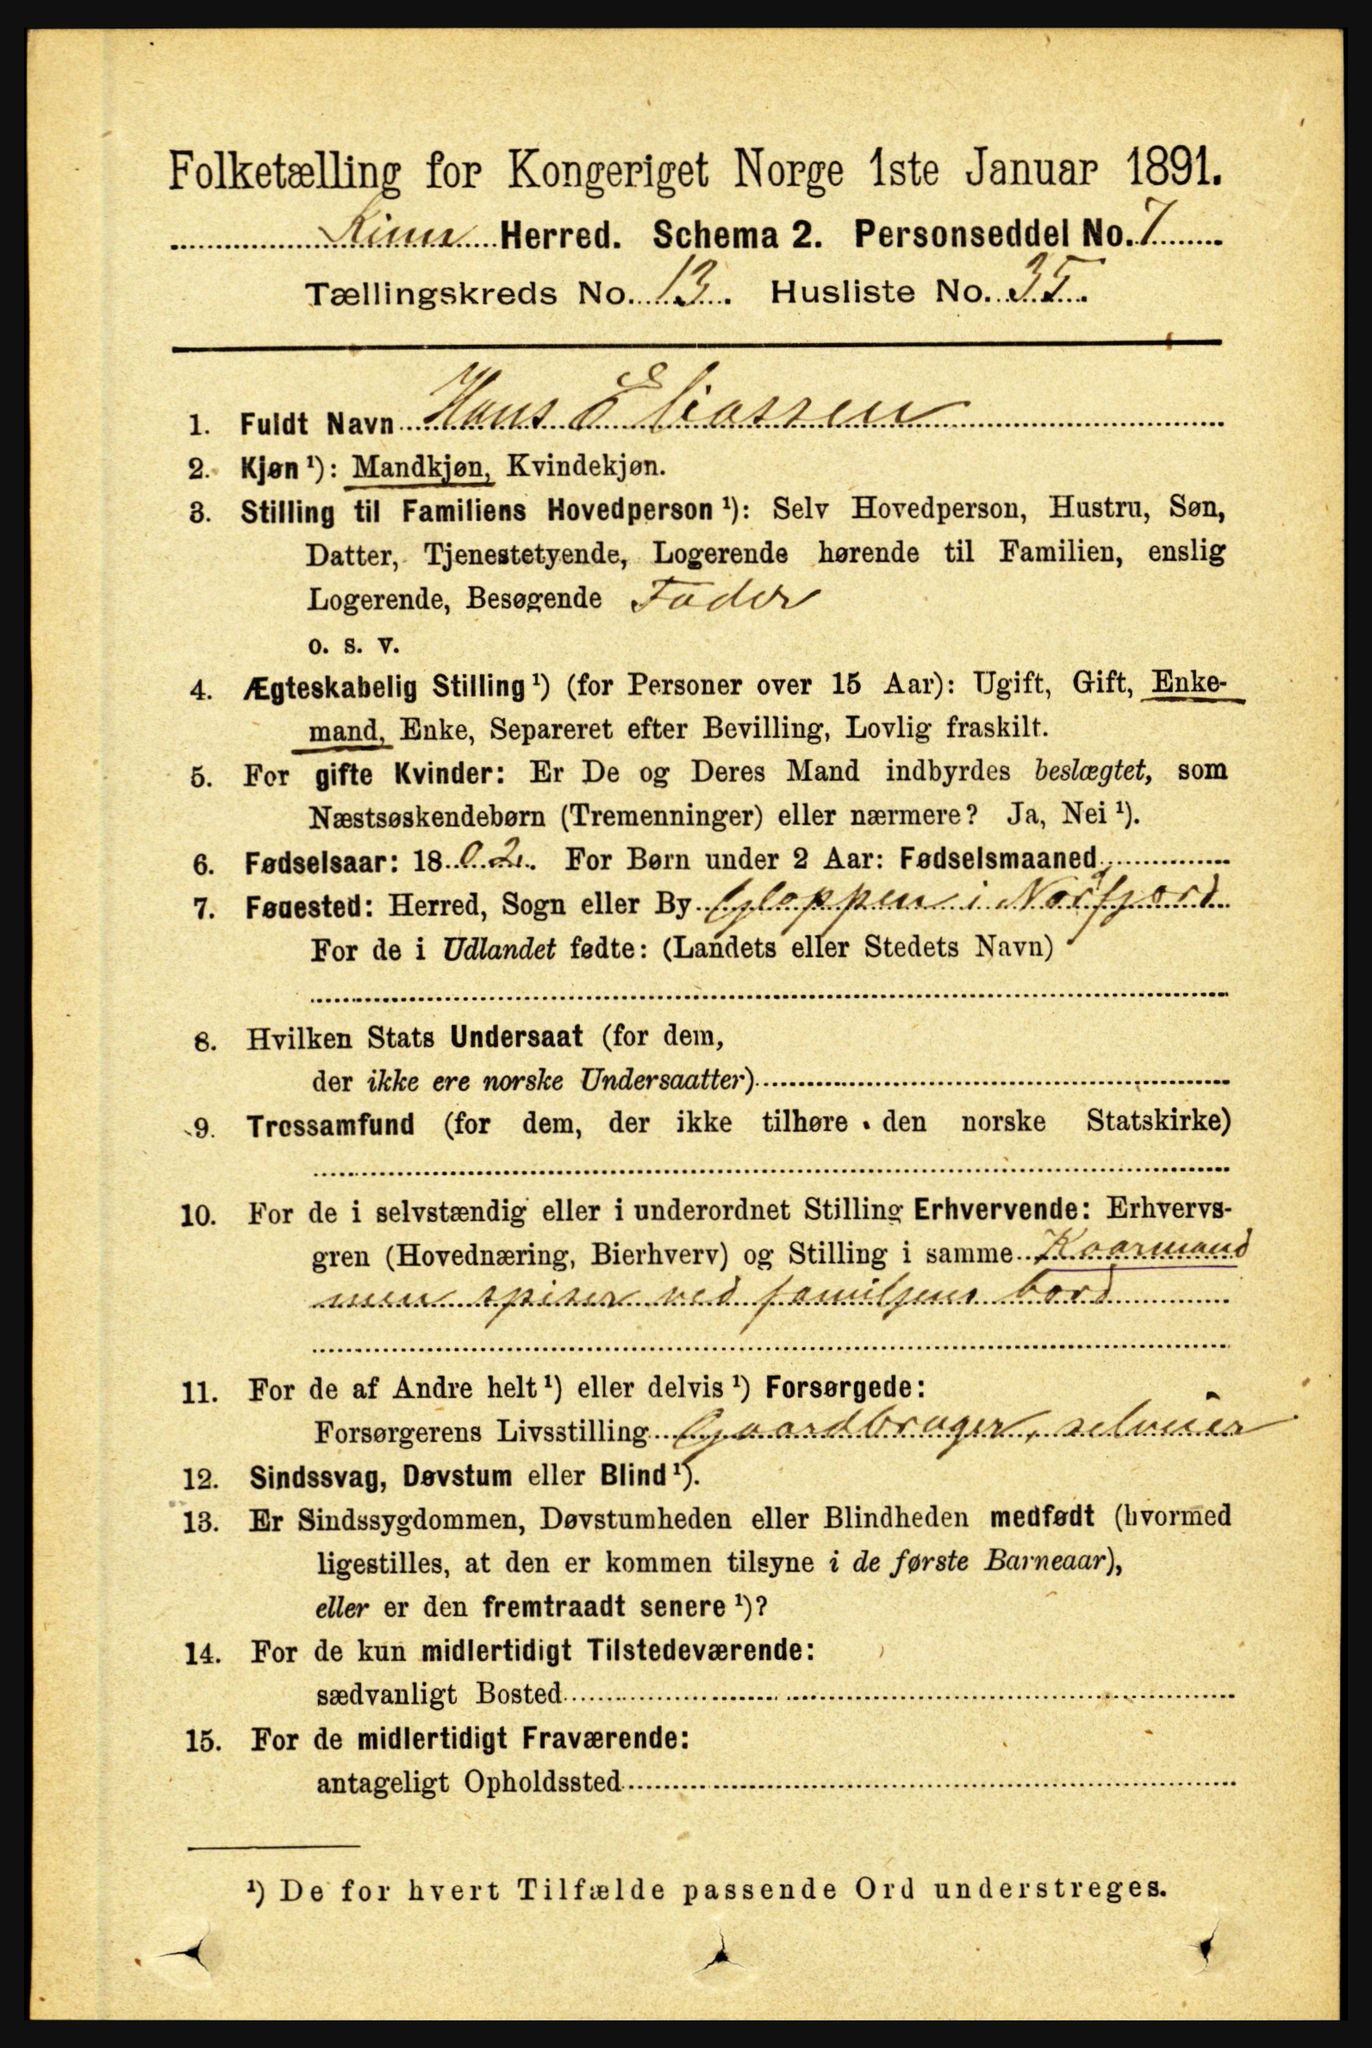 Folketælling for Kongeriget Norge 1ste Januar 1891.
Kinn Herred. Schema 2. Personseddel No. 7
Tællingskreds No. 13. Husliste No. 35.
1. Fuldt Navn Hans Eliassen
2. Kjøn ¹): Mandkjøn, Kvindekjøn.
3. Stilling til Familiens Hovedperson ¹): Selv Hovedperson, Hustru, Søn,
Datter, Tjenestetyende, Logerende hørende til Familien, enslig
Logerende, Besøgende Fader
o. s. v.
4. Ægteskabelig Stilling ¹) (for Personer over 15 Aar): Ugift, Gift, Enke-
mand, Enke, Separeret efter Bevilling, Lovlig fraskilt.
5. For gifte Kvinder: Er De og Deres Mand indbyrdes beslægtet, som
Næstsøskendebørn (Tremenninger) eller nærmere? Ja, Nei ¹).
6. Fødselsaar: 1802. For Børn under 2 Aar: Fødselsmaaned
7. Føuested: Herred, Sogn eller By Gloppen i Nordfjord
For de i Udlandet fødte: (Landets eller Stedets Navn)
8. Hvilken Stats Undersaat (for dem,
der ikke ere norske Undersaatter)
9. Trossamfund (for dem, der ikke tilhøre den norske Statskirke)
10. For de i selvstændig eller i underordnet Stilling Erhvervende: Erhvervs-
gren (Hovednæring, Bierhverv) og Stilling i samme Kaarmand
men spiser ved familjens bord
11. For de af Andre helt ¹) eller delvis ¹) Forsørgede:
Forsørgerens Livsstilling Gaardbruger, selveier
12. Sindssvag, Døvstum eller Blind ¹).
13. Er Sindssygdommen, Døvstumheden eller Blindheden medfødt (hvormed
ligestilles, at den er kommen tilsyne i de første Barneaar),
eller er den fremtraadt senere ¹)?
14. For de kun midlertidigt Tilstedeværende:
sædvanligt Bosted
15. For de midlertidigt Fraværende:
antageligt Opholdssted
¹) De for hvert Tilfælde passende Ord understreges.